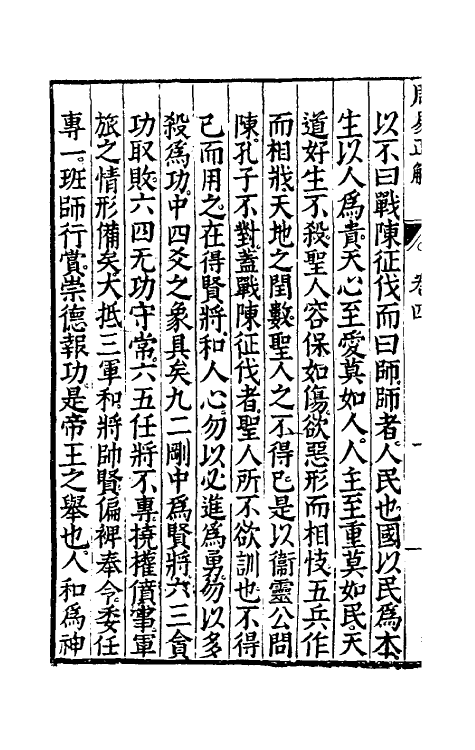 周易正解
卷四
一
以不曰戰陳征伐而曰師師者人民也國以民爲本
生以人爲貴天心至愛莫如人人主至重莫如民天
道好生不殺聖人容保如傷欲惡形而相忮五兵作
而相戕天地之閏數聖人之不得已是以衞靈公問
陳孔子不對蓋戰陳征伐者聖人所不欲訓也不得
已而用之在得賢將和人心勿以必進爲勇勿以多
殺爲功中四爻之象具矣九二剛中爲賢將六三貪
功取敗六四无功守常六五任將不專撓權僨事軍
旅之情形備矣大抵三軍和將帥賢偏裨奉令委任
專一班師行賞崇德報功是帝王之舉也人和爲神